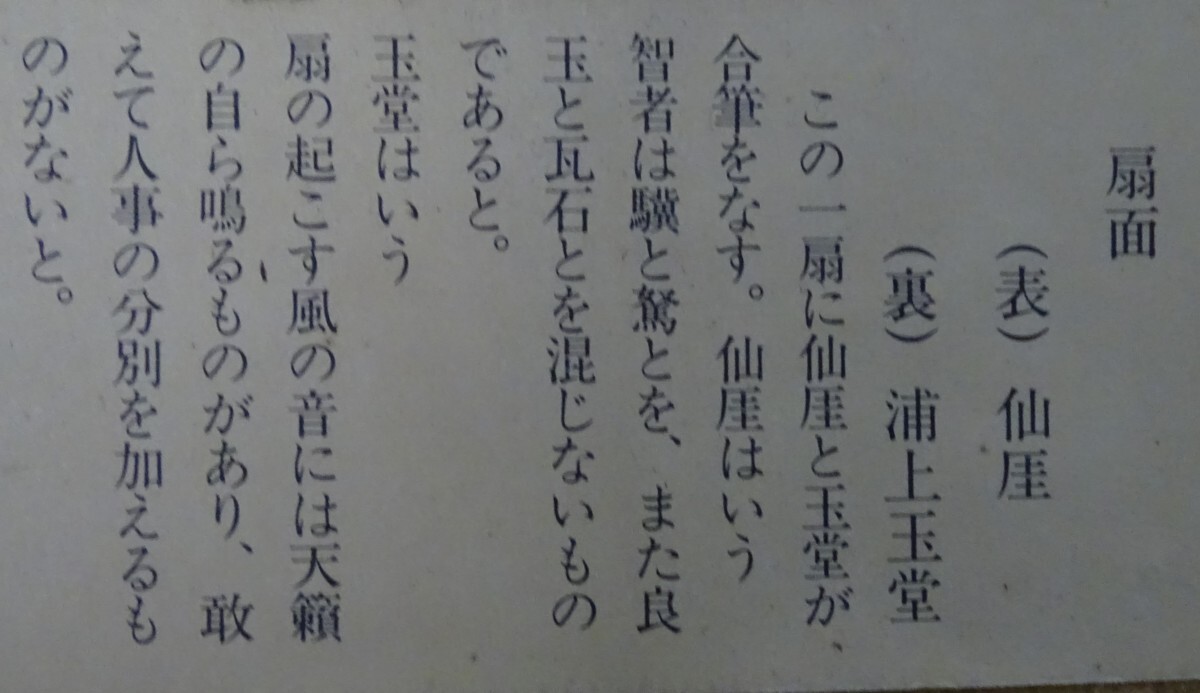 扇面
(表) 仙厓
(裏) 浦上玉堂
この一扇に仙厓と玉堂が
合筆をなす。仙厓はいう
智者は驥と駑とを、また良
玉と瓦石とを混じないもの
であると。
玉堂はいう
扇の起こす風の音には天籟
の自ら鳴るものがあり、敢
えて人事の分別を加えるも
のがないと。